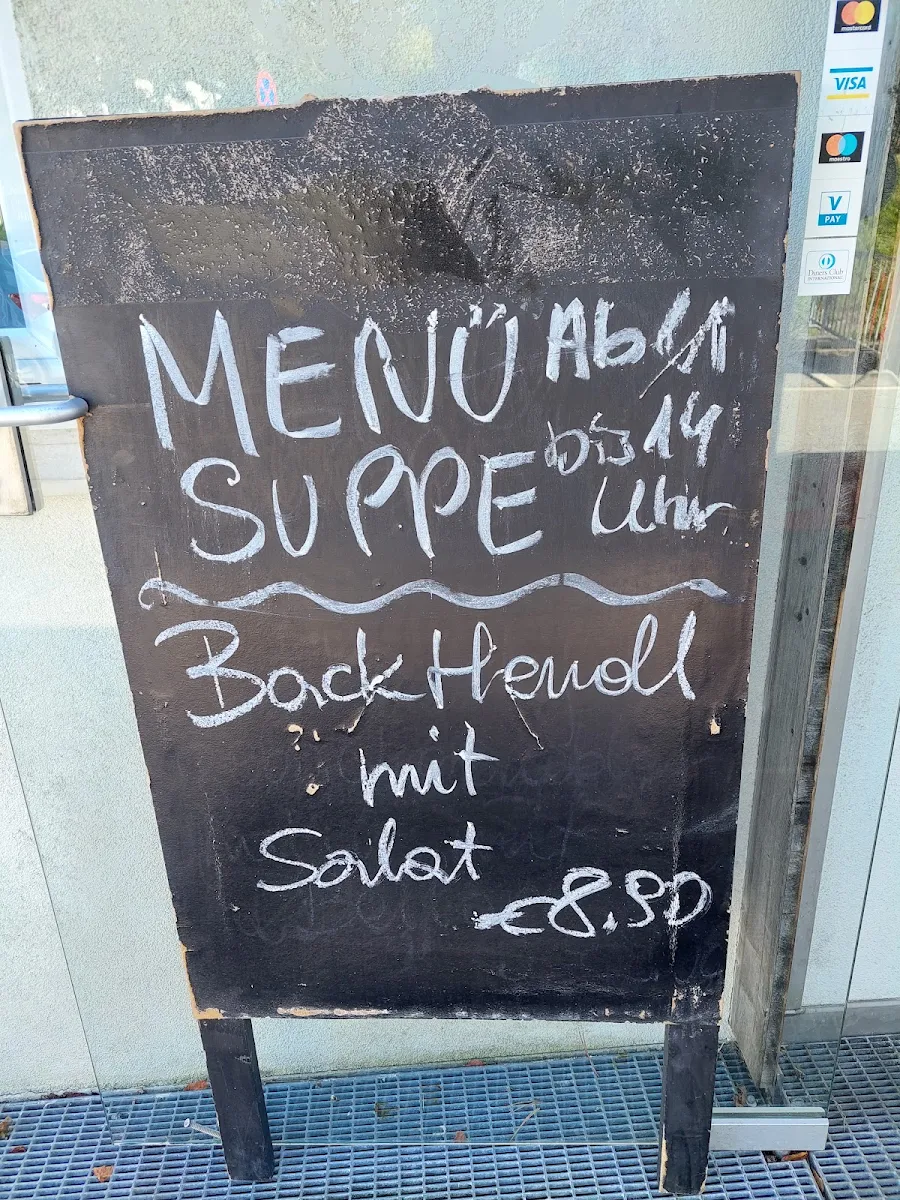 MENÜ
SUPPE
Ab 11
bis 14
Uhr
BackHendl
mit
Salat
€8,90
mastercard
VISA
maestro
V
PAY
Diners Club
INTERNATIONAL